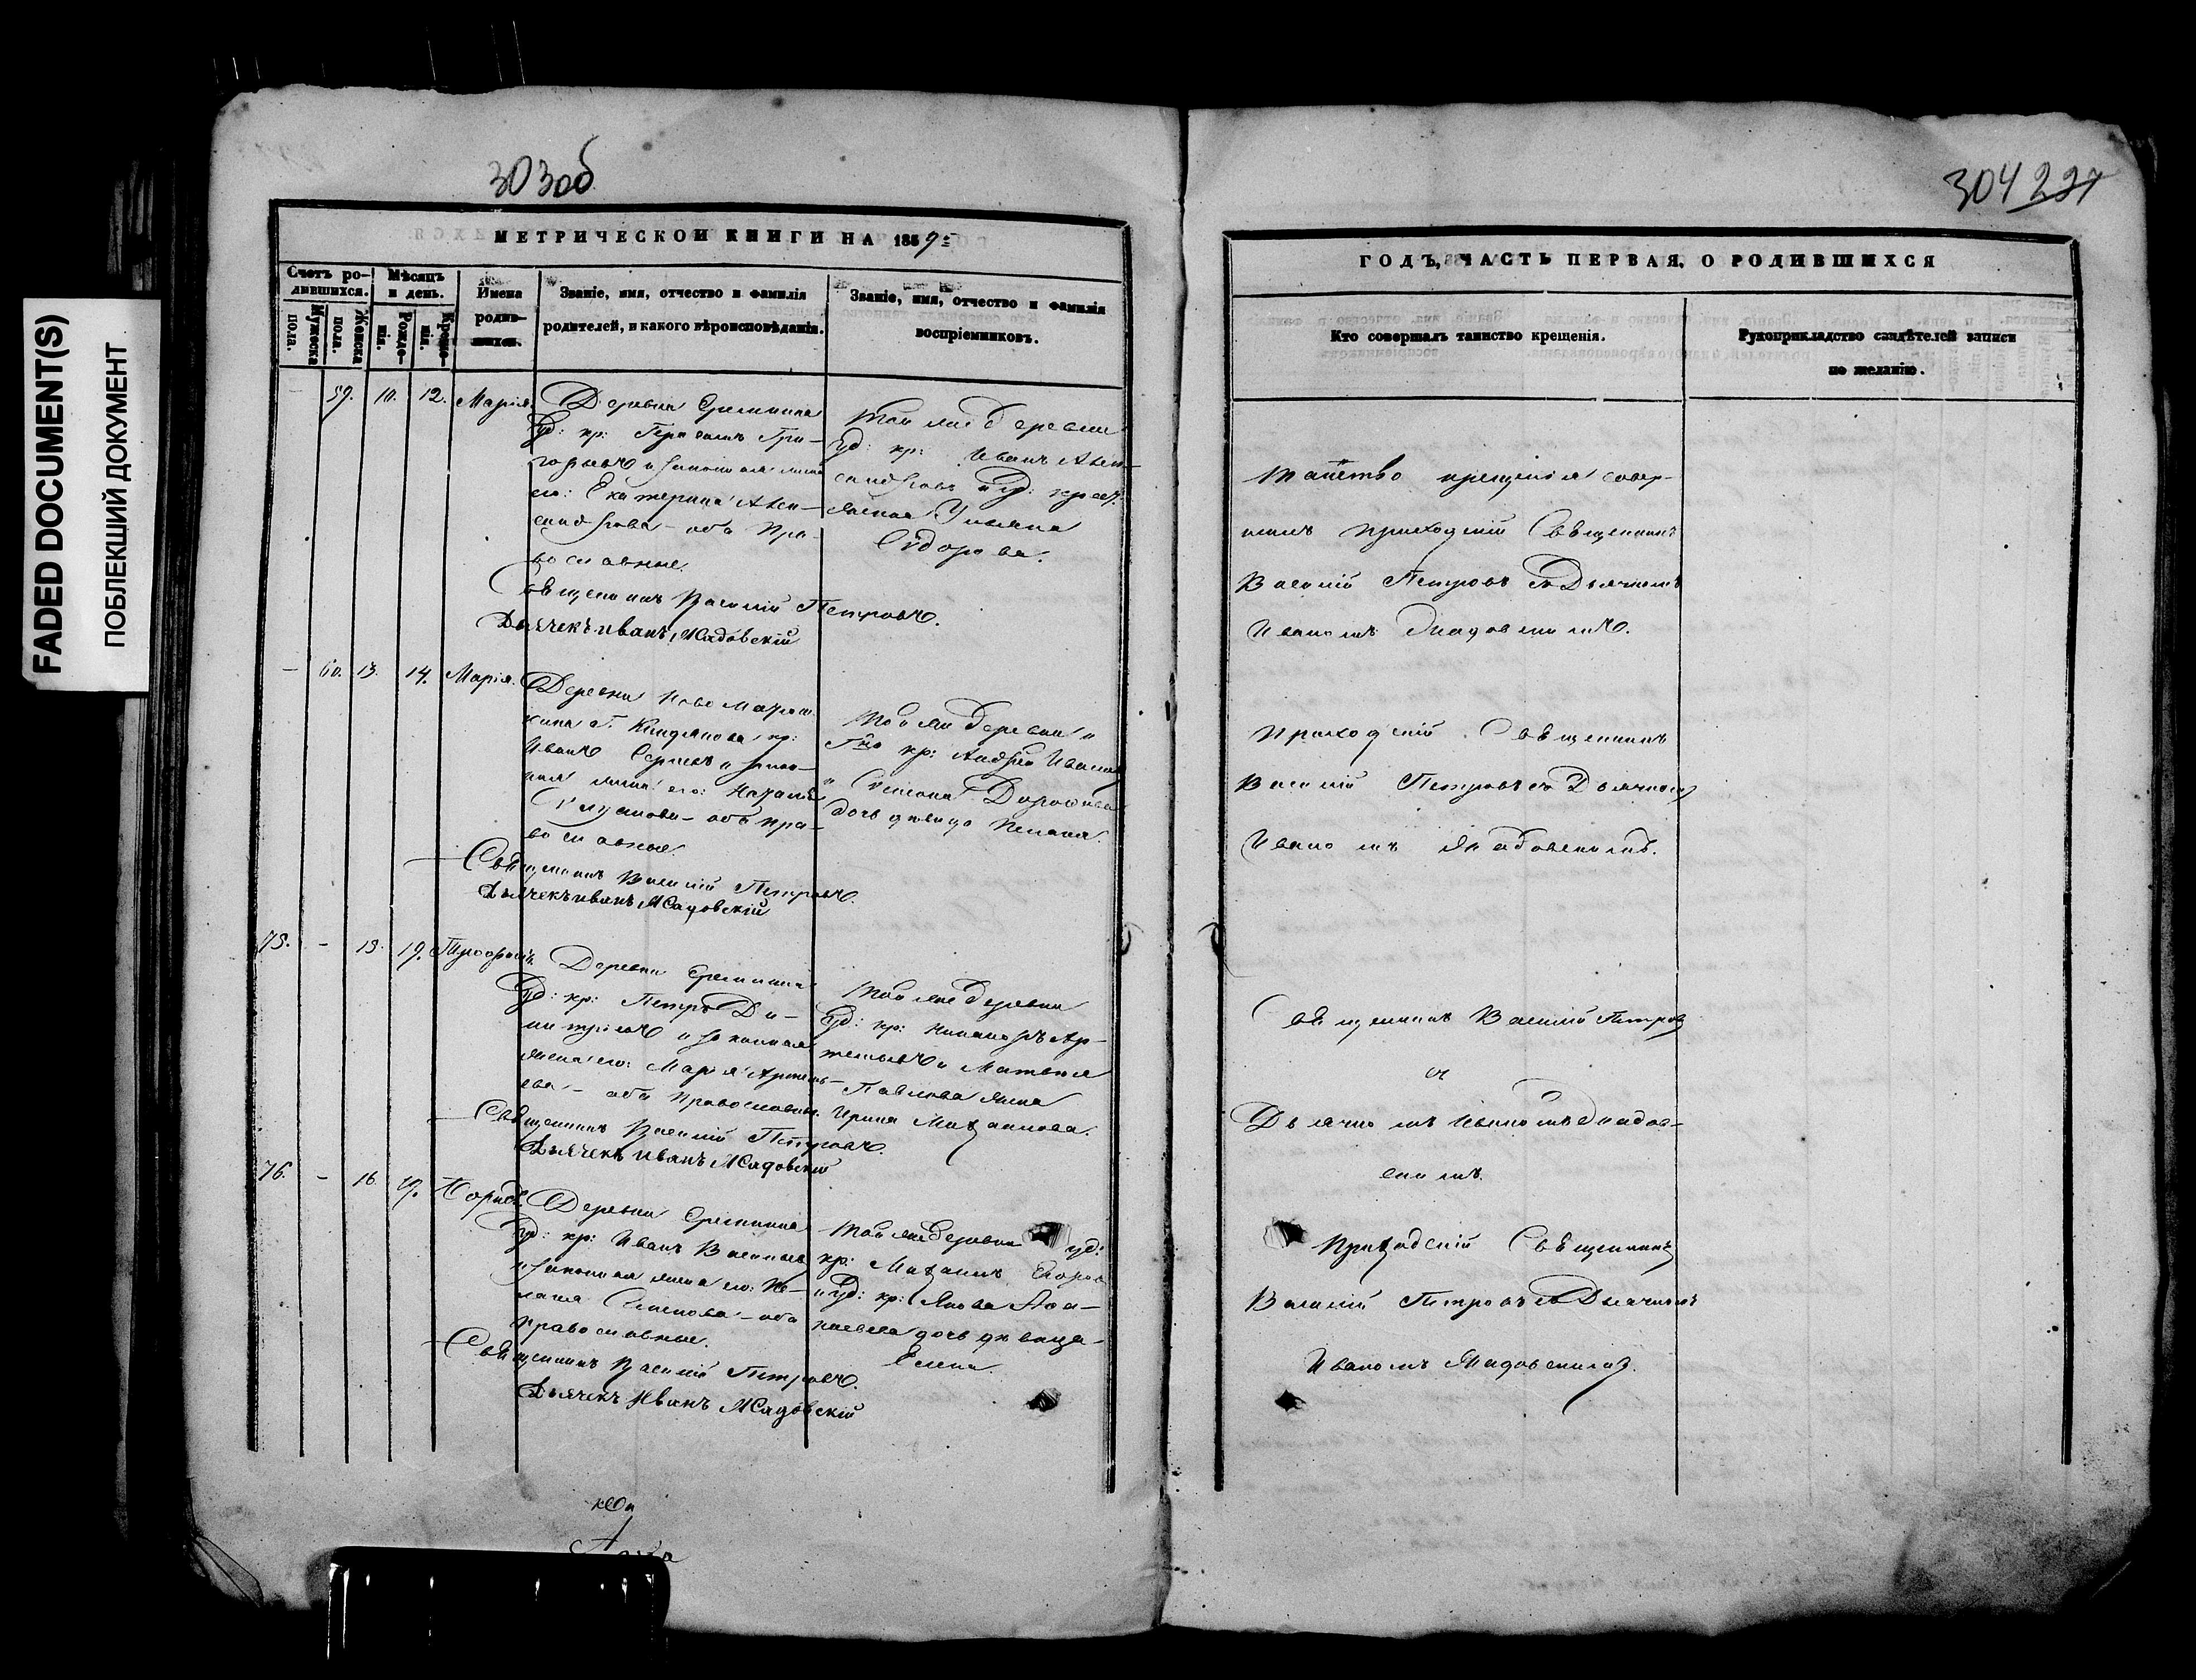 FADED DOCUMENT(S)
ПОБЛЕКЩИЙ ДОКУМЕНТ
303об
304 227
МЕТРИЧЕСКОЙ КНИГИ НА 1859
Счетъ ро-
дившихся.
Мѣсяцъ
и день.
Имена
родив-
шихся.
Мужеска
пола.
Женска
пола.
Рожде-
нія.
Креще-
нія.
Званіе, имя, отчество и фамилія
родителей, и какого вѣроисповѣданія.
Званіе, имя, отчество и фамилія
воспріемниковъ.
— 59. 10. 12. Марія
Деревни Еремкина
Уд: кр: Герасимъ Гри-
горьевъ и законная жена
его: Екатерина Алек-
сандрова - оба Пра-
вославные.
Священникъ Василій Петровъ.
Дьячекъ Иванъ Жадовскій
Той же деревни
Уд: кр: Иванъ Алек-
сандровъ и уд: крест.
Ульяна
Сидорова.
— 60. 13. 14. Марія.
Деревни Ново
кр:
Иванъ Сергеевъ и закон-
ная жена его: Наталья
- оба пра-
вославные.
Священникъ Василій Петровъ.
Дьячекъ Иванъ Жадовскій
Той же деревни
кр: Андрей Ивановъ
и
дочь девица
75. - 13. 19.
Деревни Еремкина
Уд: кр: Петръ Ди-
митріевъ и законная
жена его: Марія Артемь-
ева - оба православные.
Священникъ Василій Петровъ.
Дьячекъ Иванъ Жадовскій
Той же деревни
Уд: кр: Никаноръ Ар-
темьевъ и Матвея
Павлова жена
Ирина Михаилова.
76. - 16. 19.
Деревни Еремкина
Уд: кр: Иванъ Васильевъ
и законная жена его: Пе-
лагея Семенова - оба
православные.
Священникъ Василій Петровъ.
Дьячекъ Иванъ Жадовскій
Той же деревни уд:
кр: Михаилъ Егоровъ
и Уд: кр: Якова
дочь девица
Елена
ГОДЪ, ЧАСТЬ ПЕРВАЯ, О РОДИВШИХСЯ
Кто совершалъ таинство крещенія.
Рукоприкладство свидѣтелей записи
по желанію.
Таинство крещенія совер-
шилъ приходскій Священникъ
Василій Петровъ съ Дьячкомъ
Иваномъ Жадовскимъ.
Приходскій Священникъ
Василій Петровъ съ Дьячкомъ
Иваномъ Жадовскимъ.
Священникъ Василій Петровъ
съ
Дьячкомъ Иваномъ Жадов-
скимъ.
Приходскій Священникъ
Василій Петровъ съ Дьячкомъ
Иваномъ Жадовскимъ.